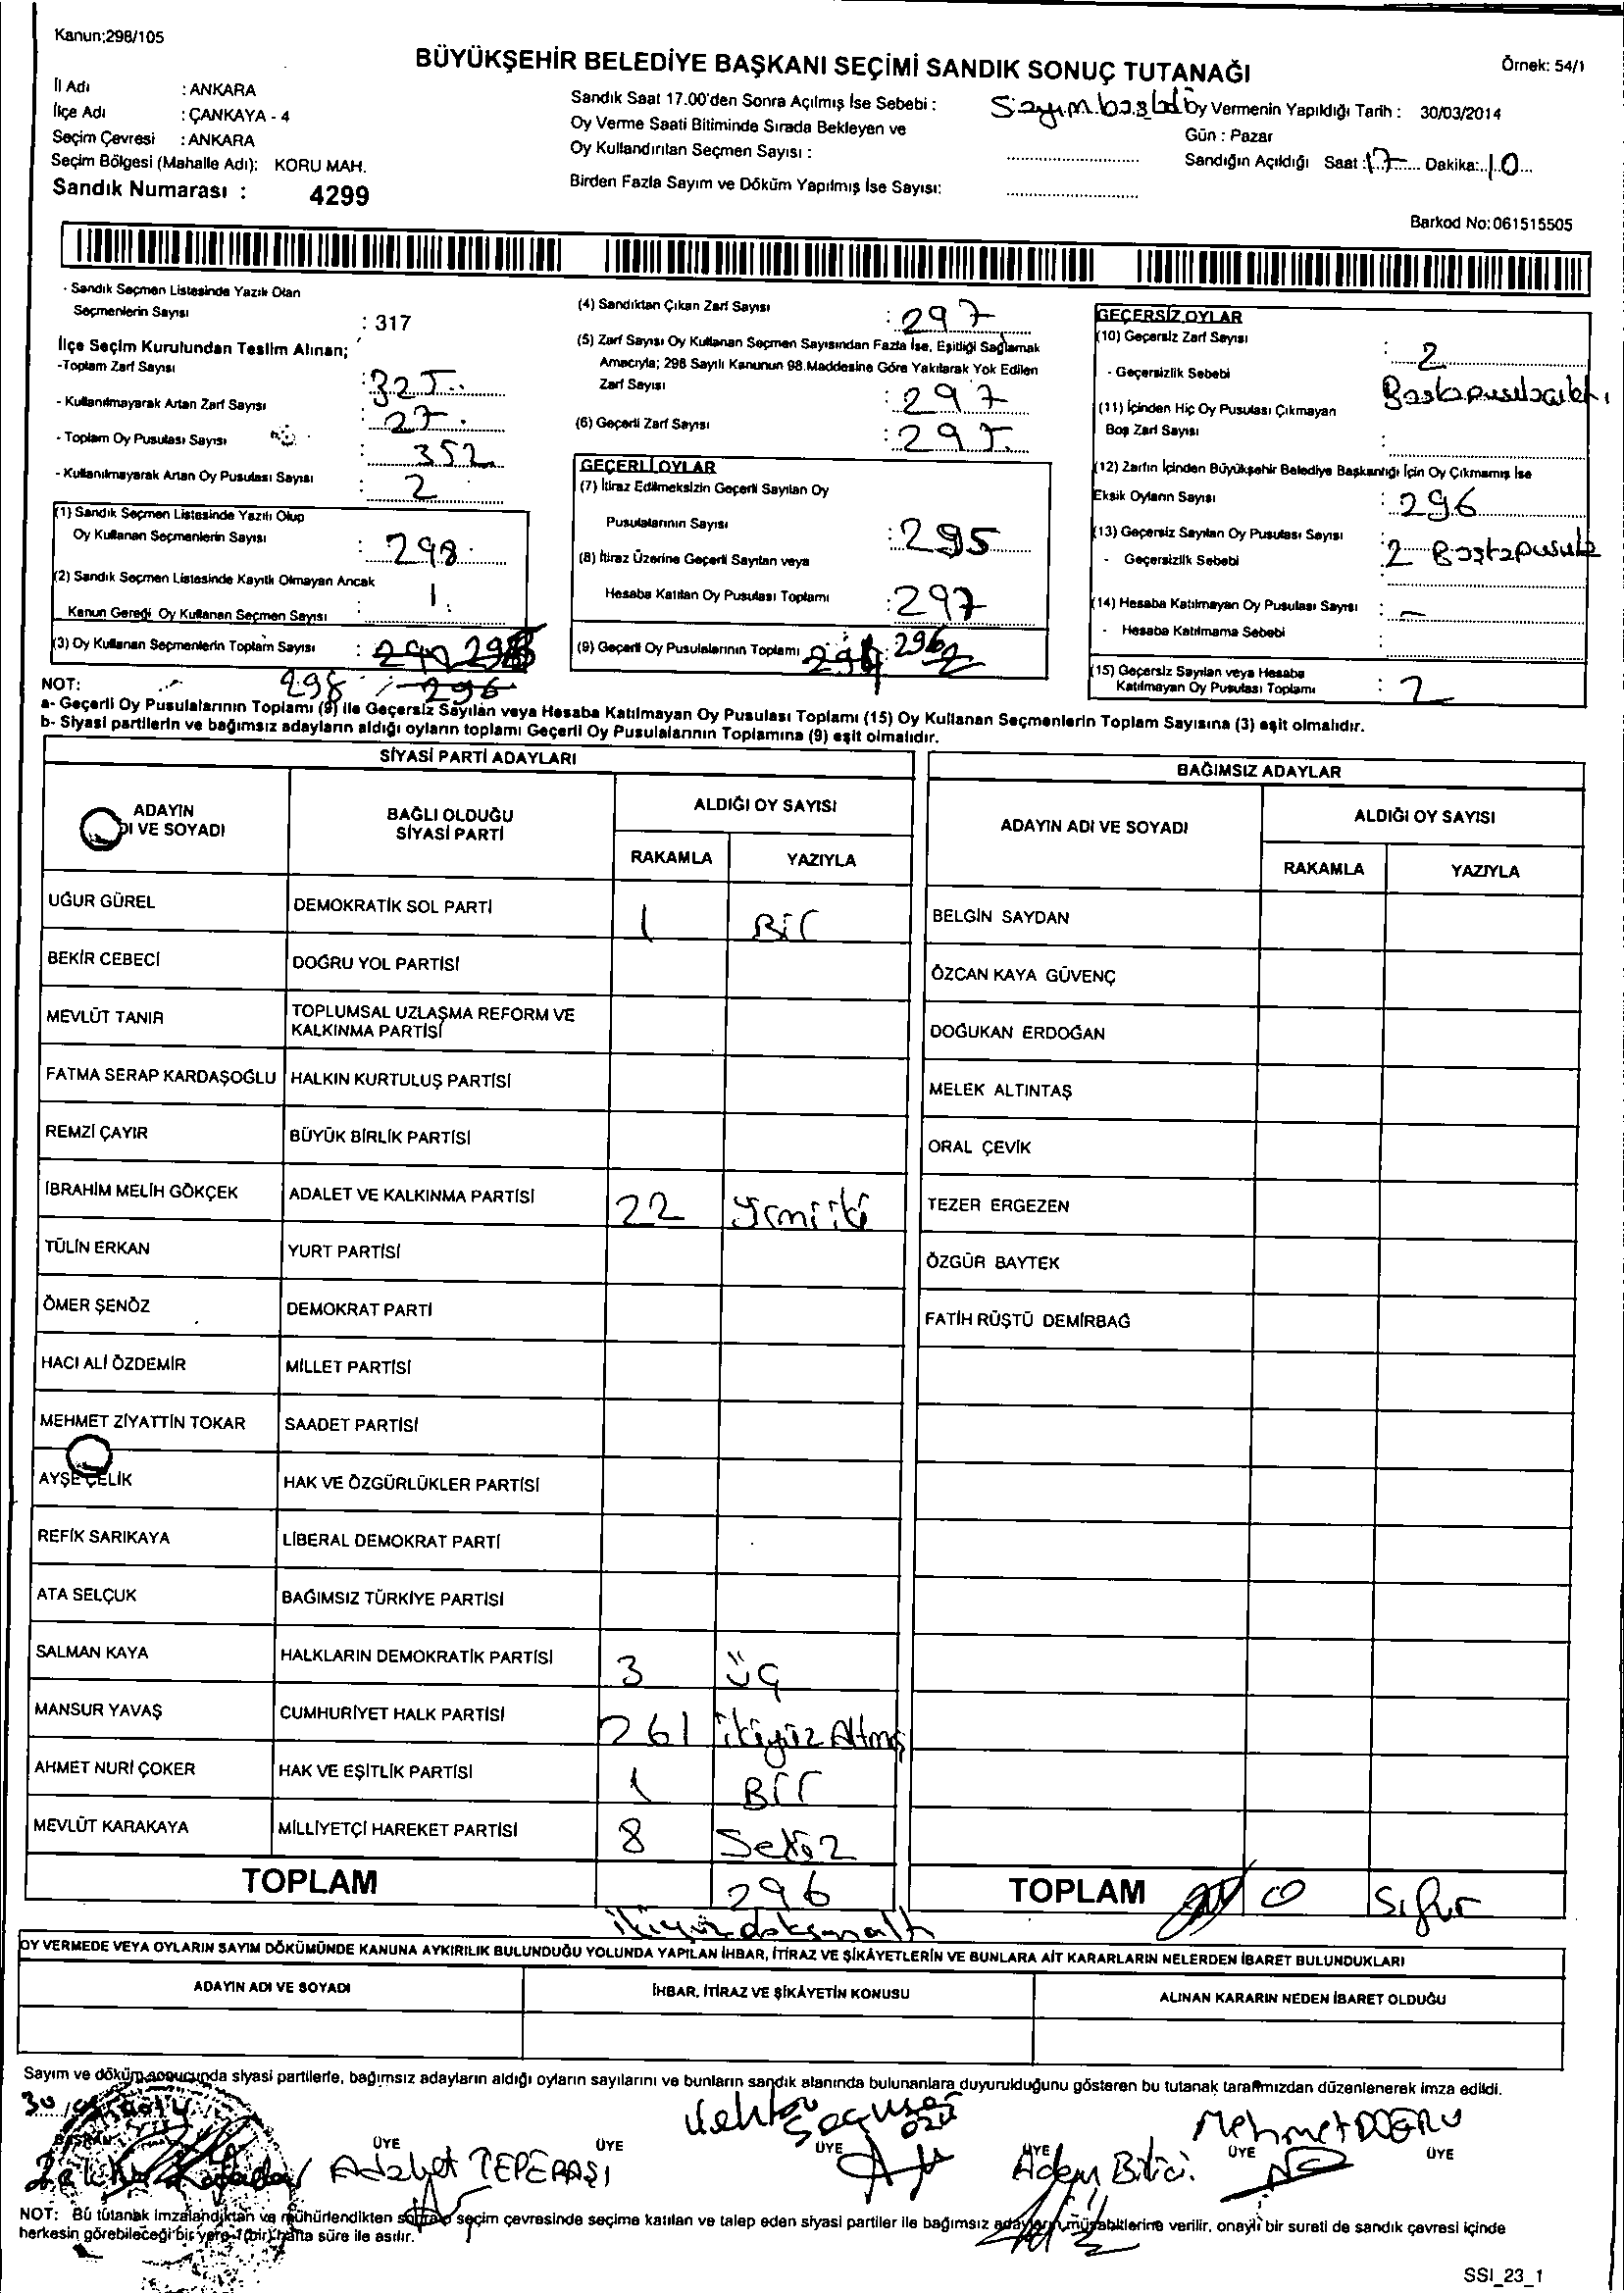 Kanun;298/105
BÜYÜKŞEHİR BELEDİYE BAŞKANI SEÇİMİ SANDIK SONUÇ TUTANAĞI
Örnek: 54/1
İl Adı : ANKARA
İlçe Adı : ÇANKAYA - 4
Seçim Çevresi : ANKARA
Seçim Bölgesi (Mahalle Adı): KORU MAH.
Sandık Numarası : 4299
Sandık Saat 17.00'den Sonra Açılmış İse Sebebi :
Oy Verme Saati Bitiminde Sırada Bekleyen ve
Oy Kullandırılan Seçmen Sayısı :
Birden Fazla Sayım ve Döküm Yapılmış İse Sayısı:
Oy Vermenin Yapıldığı Tarih : 30/03/2014
Gün : Pazar
Sandığın Açıldığı Saat : 17 Dakika: 10
Barkod No:061515505
- Sandık Seçmen Listesinde Yazılı Olan
Seçmenlerin Sayısı : 317
İlçe Seçim Kurulundan Teslim Alınan;
-Toplam Zarf Sayısı : 325
- Kullanılmayarak Artan Zarf Sayısı : 27
- Toplam Oy Pusulası Sayısı : 352
- Kullanılmayarak Artan Oy Pusulası Sayısı : 2
(1) Sandık Seçmen Listesinde Yazılı Olup
Oy Kullanan Seçmenlerin Sayısı : 298
(2) Sandık Seçmen Listesinde Kayıtlı Olmayan Ancak
Kanun Gereği Oy Kullanan Seçmen Sayısı : 1
(3) Oy Kullanan Seçmenlerin Toplam Sayısı :
298 296
(4) Sandıktan Çıkan Zarf Sayısı : 297
(5) Zarf Sayısı Oy Kullanan Seçmen Sayısından Fazla İse, Eşitliği Sağlamak
Amacıyla; 298 Sayılı Kanunun 98.Maddesine Göre Yakılarak Yok Edilen
Zarf Sayısı : 297
(6) Geçerli Zarf Sayısı : 295
GEÇERLİ OYLAR
(7) İtiraz Edilmeksizin Geçerli Sayılan Oy
Pusulalarının Sayısı : 295
(8) İtiraz Üzerine Geçerli Sayılan veya
Hesaba Katılan Oy Pusulası Toplamı : 297
(9) Geçerli Oy Pusulalarının Toplamı : 296
GEÇERSİZ OYLAR
(10) Geçersiz Zarf Sayısı : 2
- Geçersizlik Sebebi
(11) İçinden Hiç Oy Pusulası Çıkmayan
Boş Zarf Sayısı :
(12) Zarfın İçinden Büyükşehir Belediye Başkanlığı İçin Oy Çıkmamış İse
Eksik Oyların Sayısı : 296
(13) Geçersiz Sayılan Oy Pusulası Sayısı : 2
- Geçersizlik Sebebi
(14) Hesaba Katılmayan Oy Pusulası Sayısı : -
- Hesaba Katılmama Sebebi :
(15) Geçersiz Sayılan veya Hesaba
Katılmayan Oy Pusulası Toplamı : 2
NOT:
a- Geçerli Oy Pusulalarının Toplamı (9) ile Geçersiz Sayılan veya Hesaba Katılmayan Oy Pusulası Toplamı (15) Oy Kullanan Seçmenlerin Toplam Sayısına (3) eşit olmalıdır.
b- Siyasi partilerin ve bağımsız adayların aldığı oyların toplamı Geçerli Oy Pusulalarının Toplamına (9) eşit olmalıdır.
SİYASİ PARTİ ADAYLARI
ADAYIN BAĞLI OLDUĞU ALDIĞI OY SAYISI
DI VE SOYADI SİYASİ PARTİ RAKAMLA YAZIYLA
UĞUR GÜREL DEMOKRATİK SOL PARTİ 1 Bir
BEKİR CEBECİ DOĞRU YOL PARTİSİ
MEVLÜT TANIR TOPLUMSAL UZLAŞMA REFORM VE
KALKINMA PARTİSİ
FATMA SERAP KARDAŞOĞLU HALKIN KURTULUŞ PARTİSİ
REMZİ ÇAYIR BÜYÜK BİRLİK PARTİSİ
İBRAHİM MELİH GÖKÇEK ADALET VE KALKINMA PARTİSİ 22 Yirmi iki
TÜLİN ERKAN YURT PARTİSİ
ÖMER ŞENÖZ DEMOKRAT PARTİ
HACI ALİ ÖZDEMİR MİLLET PARTİSİ
MEHMET ZİYATTİN TOKAR SAADET PARTİSİ
AYŞE ÇELİK HAK VE ÖZGÜRLÜKLER PARTİSİ
REFİK SARIKAYA LİBERAL DEMOKRAT PARTİ
ATA SELÇUK BAĞIMSIZ TÜRKİYE PARTİSİ
SALMAN KAYA HALKLARIN DEMOKRATİK PARTİSİ 3 Üç
MANSUR YAVAŞ CUMHURİYET HALK PARTİSİ 261 ikiyüz Altmış
AHMET NURİ ÇOKER HAK VE EŞİTLİK PARTİSİ 1 Bir
MEVLÜT KARAKAYA MİLLİYETÇİ HAREKET PARTİSİ 8 Sekiz
TOPLAM 296
ikiyüzdoksanaltı
BAĞIMSIZ ADAYLAR
ADAYIN ADI VE SOYADI ALDIĞI OY SAYISI
RAKAMLA YAZIYLA
BELGİN SAYDAN
ÖZCAN KAYA GÜVENÇ
DOĞUKAN ERDOĞAN
MELEK ALTINTAŞ
ORAL ÇEVİK
TEZER ERGEZEN
ÖZGÜR BAYTEK
FATİH RÜŞTÜ DEMİRBAĞ
TOPLAM 0 Sıfır
OY VERMEDE VEYA OYLARIN SAYIM DÖKÜMÜNDE KANUNA AYKIRILIK BULUNDUĞU YOLUNDA YAPILAN İHBAR, İTİRAZ VE ŞİKÂYETLERİN VE BUNLARA AİT KARARLARIN NELERDEN İBARET BULUNDUKLARI
ADAYIN ADI VE SOYADI İHBAR, İTİRAZ VE ŞİKÂYETİN KONUSU ALINAN KARARIN NEDEN İBARET OLDUĞU
Sayım ve döküm sonucunda siyasi partilerle, bağımsız adayların aldığı oyların sayılarını ve bunların sandık alanında bulunanlara duyurulduğunu gösteren bu tutanak tarafımızdan düzenlenerek imza edildi.
Mehmet DOĞRU
BAŞKAN ÜYE ÜYE ÜYE ÜYE ÜYE ÜYE
Adalet TEPEBAŞI Adem Bitici
NOT: Bu tutanak imzalandıktan ve mühürlendikten sonra seçim çevresinde seçime katılan ve talep eden siyasi partiler ile bağımsız adayların müşahitlerine verilir, onaylı bir sureti de sandık çevresi içinde
herkesin görebileceği bir yere 1(bir) hafta süre ile asılır.
SSI_23_1